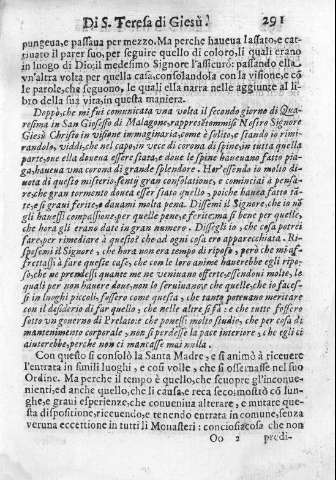 Di S. Teresa di Giesù. 291
pungeua, e passaua per mezzo. Ma perche haueua lassato, e cat-
tiuato il parer suo, per seguire quello di coloro, li quali erano
in luogo di Dio; il medesimo Signore l'assicurò: passando ella
vn'altra volta per quella casa, consolandola con la visione, e cõ
le parole, che seguono, le quali ella narra nelle aggiunte al li-
bro della sua vita, in questa maniera.
Doppò, che mi fui comunicata vna volta il secondo giorno di Qua-
resima in San Gioseffo di Malagone, rappresẽtommisi Nostro Signore
Giesù Christo in visione immaginaria, come è solito, e stando io miran-
dolo, viddi, che nel capo, in vece di corona di spine, in tutta quella
parte, oue ella doueua essere stata, e doue le spine haueuano fatto pia-
ga, haueua vna corona di grande splendore. Hor'essendo io molto di-
uota di questo misterio, sentij gran consolatione, e cominciai à pensa-
re, che gran tormento doueà esser stato quello, poiche haueà fatto tã-
te, e sì graui ferite, e dauami molta pena. Dissemi il Signore, che io nõ
gli hauessi compassione, per quelle pene, e ferite, ma sì bene per quelle,
che hora gli erano date in gran numero. Dissegli io, che cosa potrei
fare, per rimediare à questo? che ad ogni cosa ero apparecchiata. Ri-
sposemi il Signore, che hora non era tempo di riposo, però che mi af-
frettassi à fare queste case, che con le loro anime hauerebbe egli ripo-
so, che ne prendessi quante me ne veniuano offerte, essendoui molte, le
quali per non hauere doue, non lo seruiuano: e che quelle, che io faces-
si in luoghi piccoli, fossero come questa, che tanto poteuano meritare
con il desiderio di far quello, che nelle altre si fà: e che tutte fossero
sotto vn gouerno di Prelato: e che ponessi molto studio, che per cosa di
mantenimento corporale, non si perdesse la pace interiore, che egli ci
aiuterebbe, perche non ci mancasse mai nulla.
Con questo si consolò la Santa Madre, e si animò à riceuere
l'entrata in simili luoghi, e così volle, che si osseruasse nel suo
Ordine. Ma perche il tempo è quello, che scuopre gl'inconue-
nienti, ed anche quello, che li causa, e reca seco: mostrò cõ lun-
ghe, e graui esperienze, che conueniua alterare, e mutare que-
sta dispositione, riceuendo, e tenendo entrata in comune, senza
veruna eccettione in tutti li Monasteri: conciosiacosa che non
Oo 2 predi-